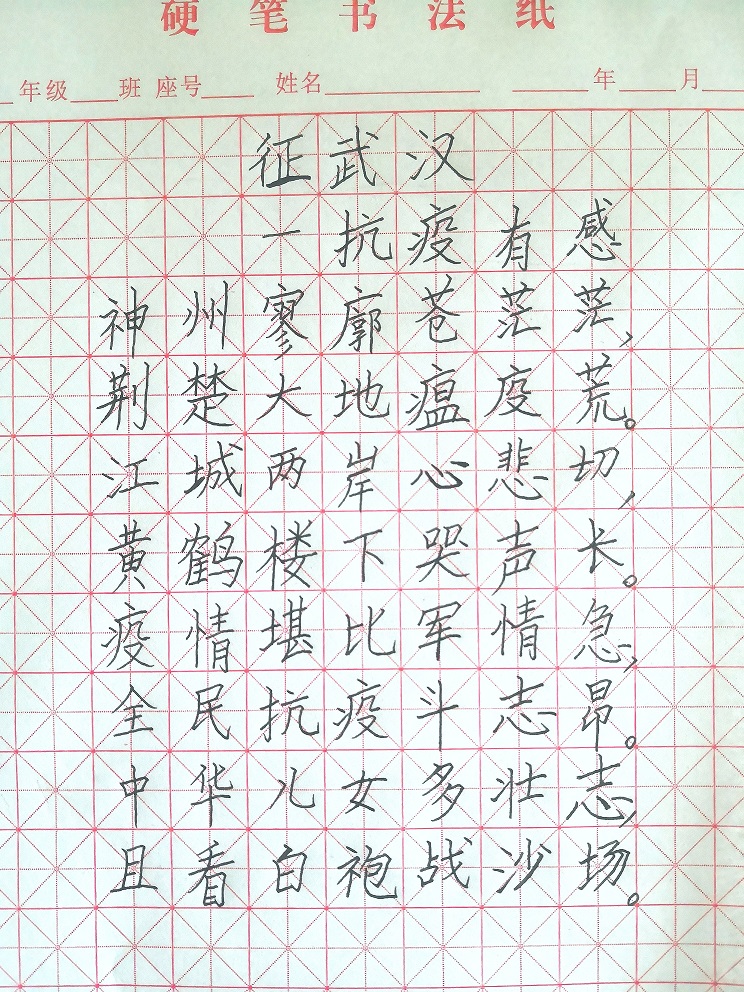 硬笔书法纸
年级 班 座号 姓名 年 月
征武汉
一抗疫有感
神州寥廓苍茫茫,
荆楚大地瘟疫荒。
江城两岸心悲切,
黄鹤楼下哭声长。
疫情堪比军情急,
全民抗疫斗志昂。
中华儿女多壮志,
且看白袍战沙场。